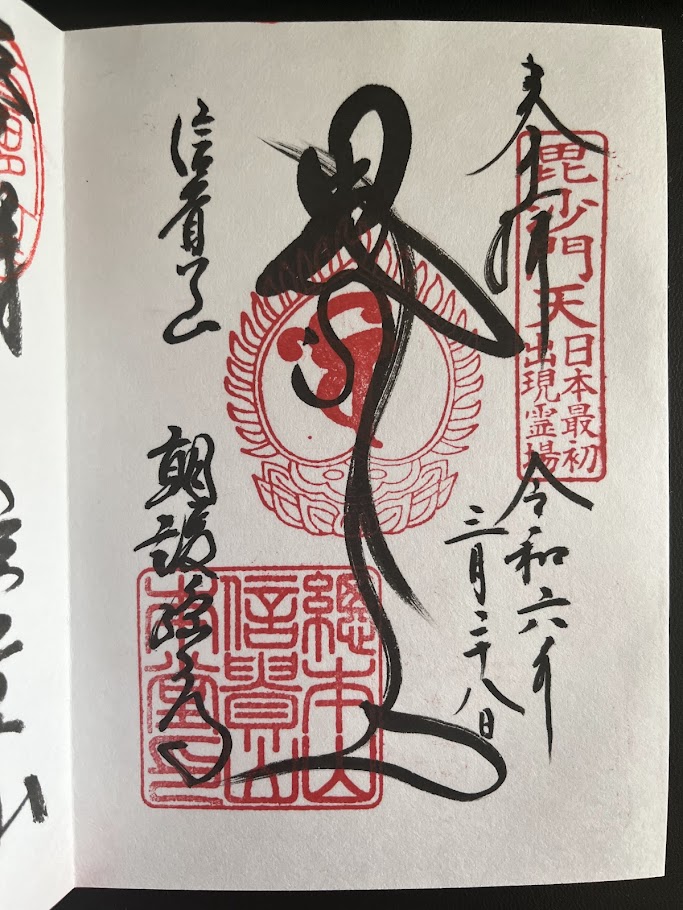 奉拝
毘沙門天
日本最初
出現霊場
令和六年
三月二十八日
信貴山
朝護孫子寺
總本山
信貴山
本堂印